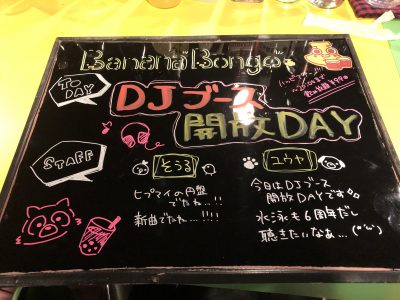 Banana Bongo
TODAY
DJブース
開放DAY
STAFF
そうる
ユウヤ
ヒプマイの円盤
でたね…!!
新曲でたね…!!!!
今日はDJブース
開放DAYです
水泳も6周年だし
聴きたいなぁ…(*'ω'*)